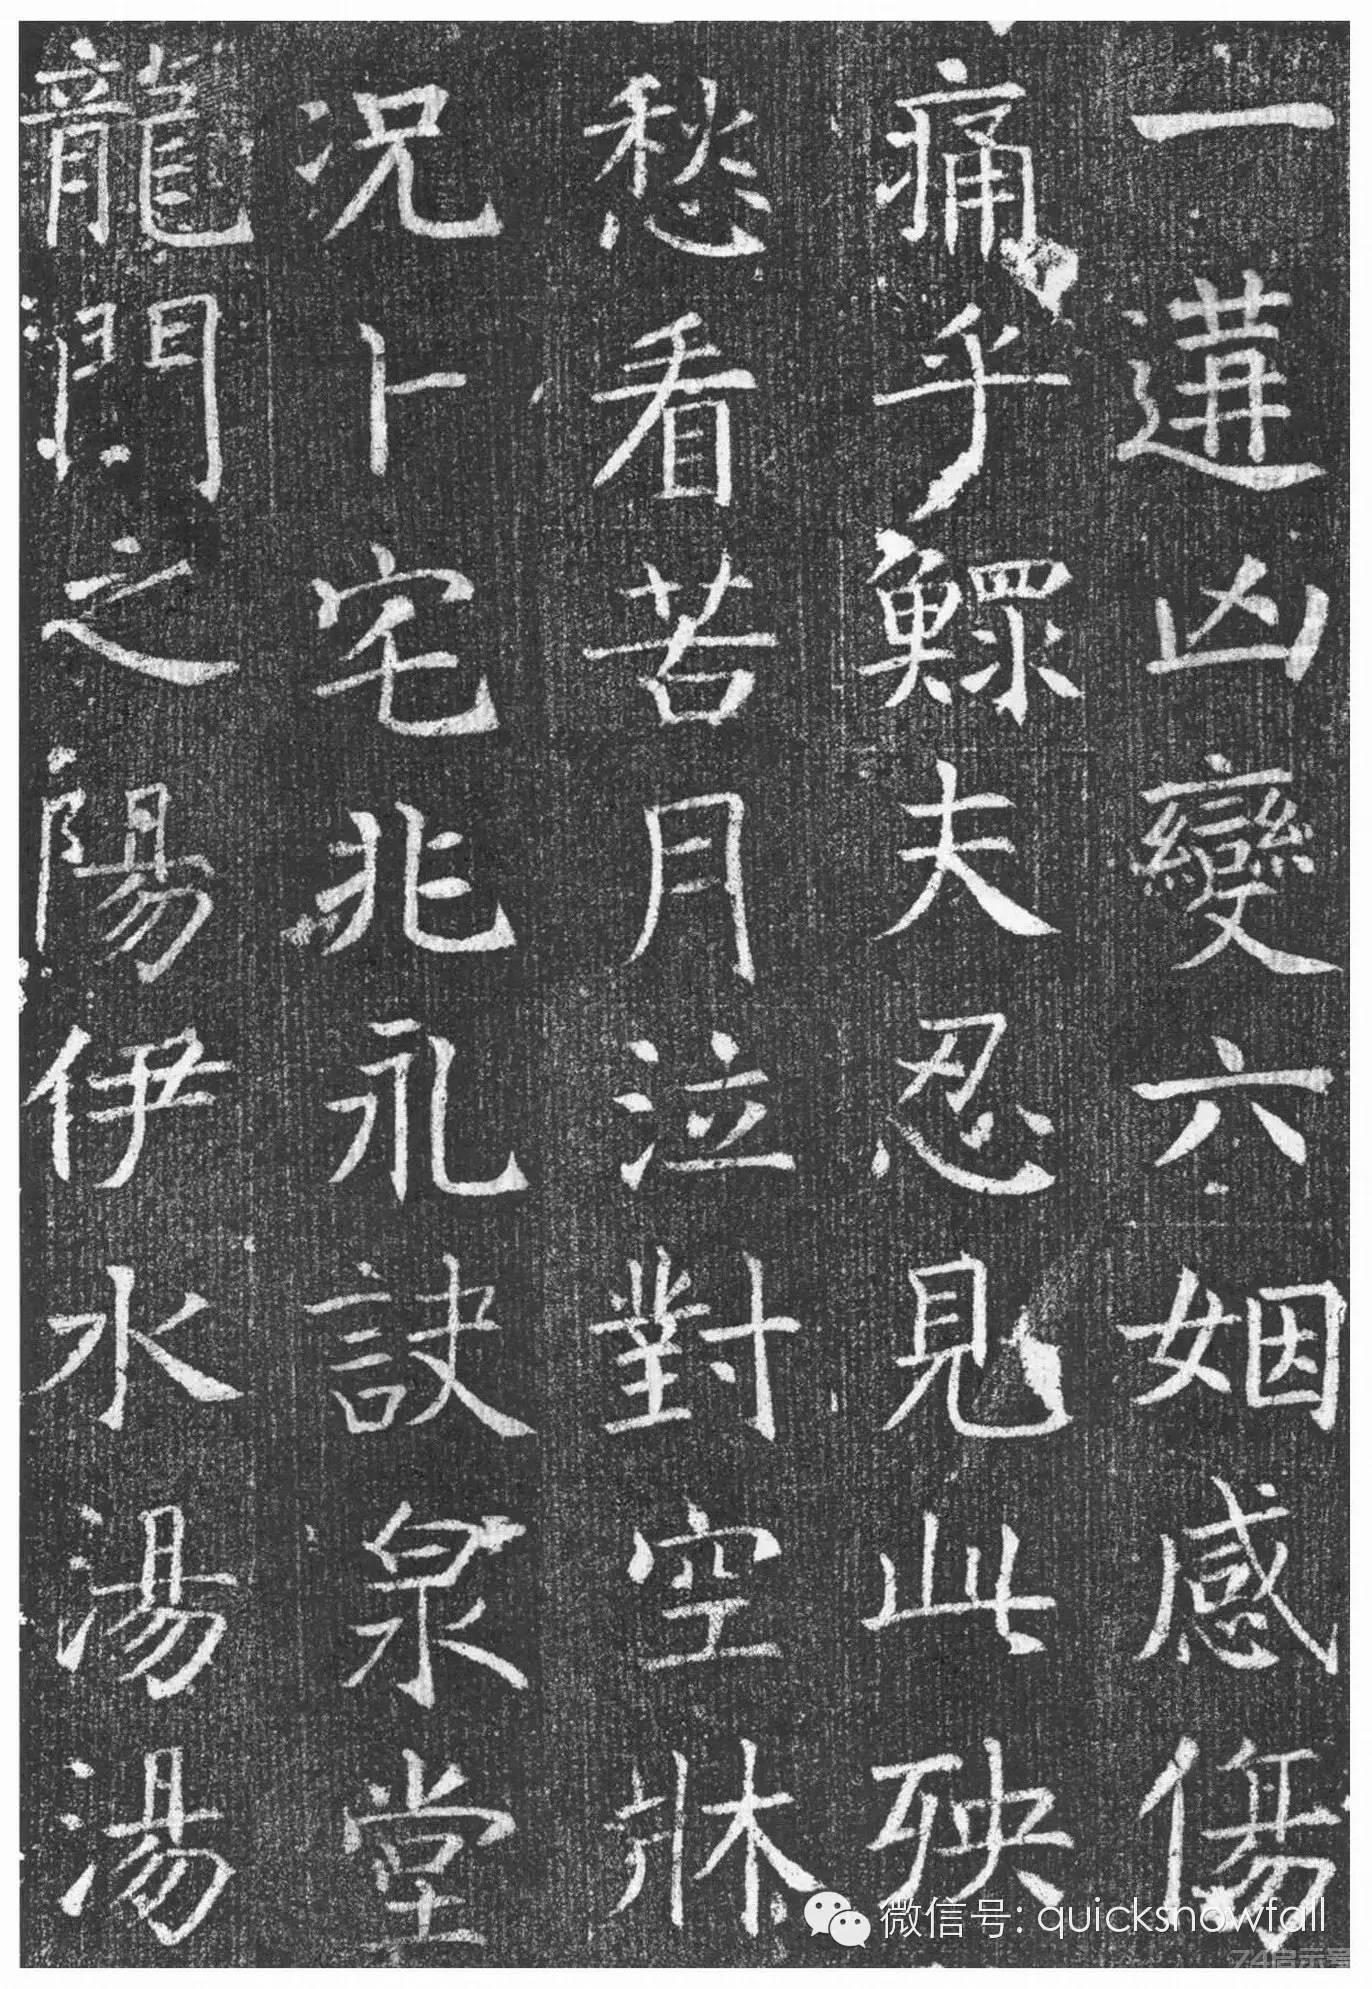 一遘凶變六姻感傷
痛乎鰥夫忍見此殃
愁看苦月泣對空牀
况卜宅兆永訣泉堂
龍門之陽伊水湯湯
微信号: quicksnowfall